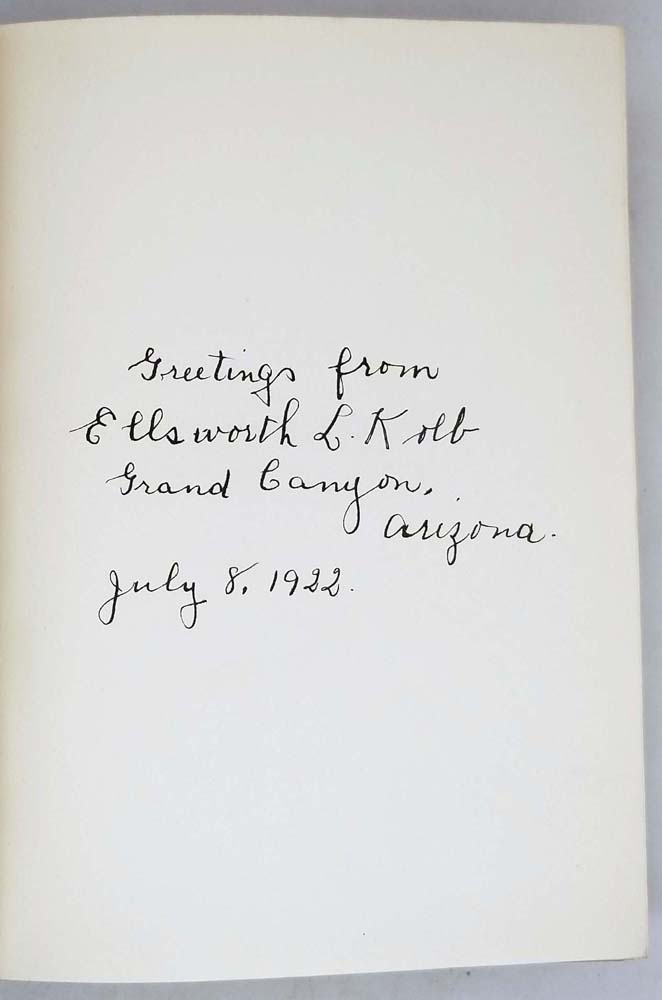 Greetings from
Ellsworth L. Kolb
Grand Canyon,
Arizona.
July 8, 1922.